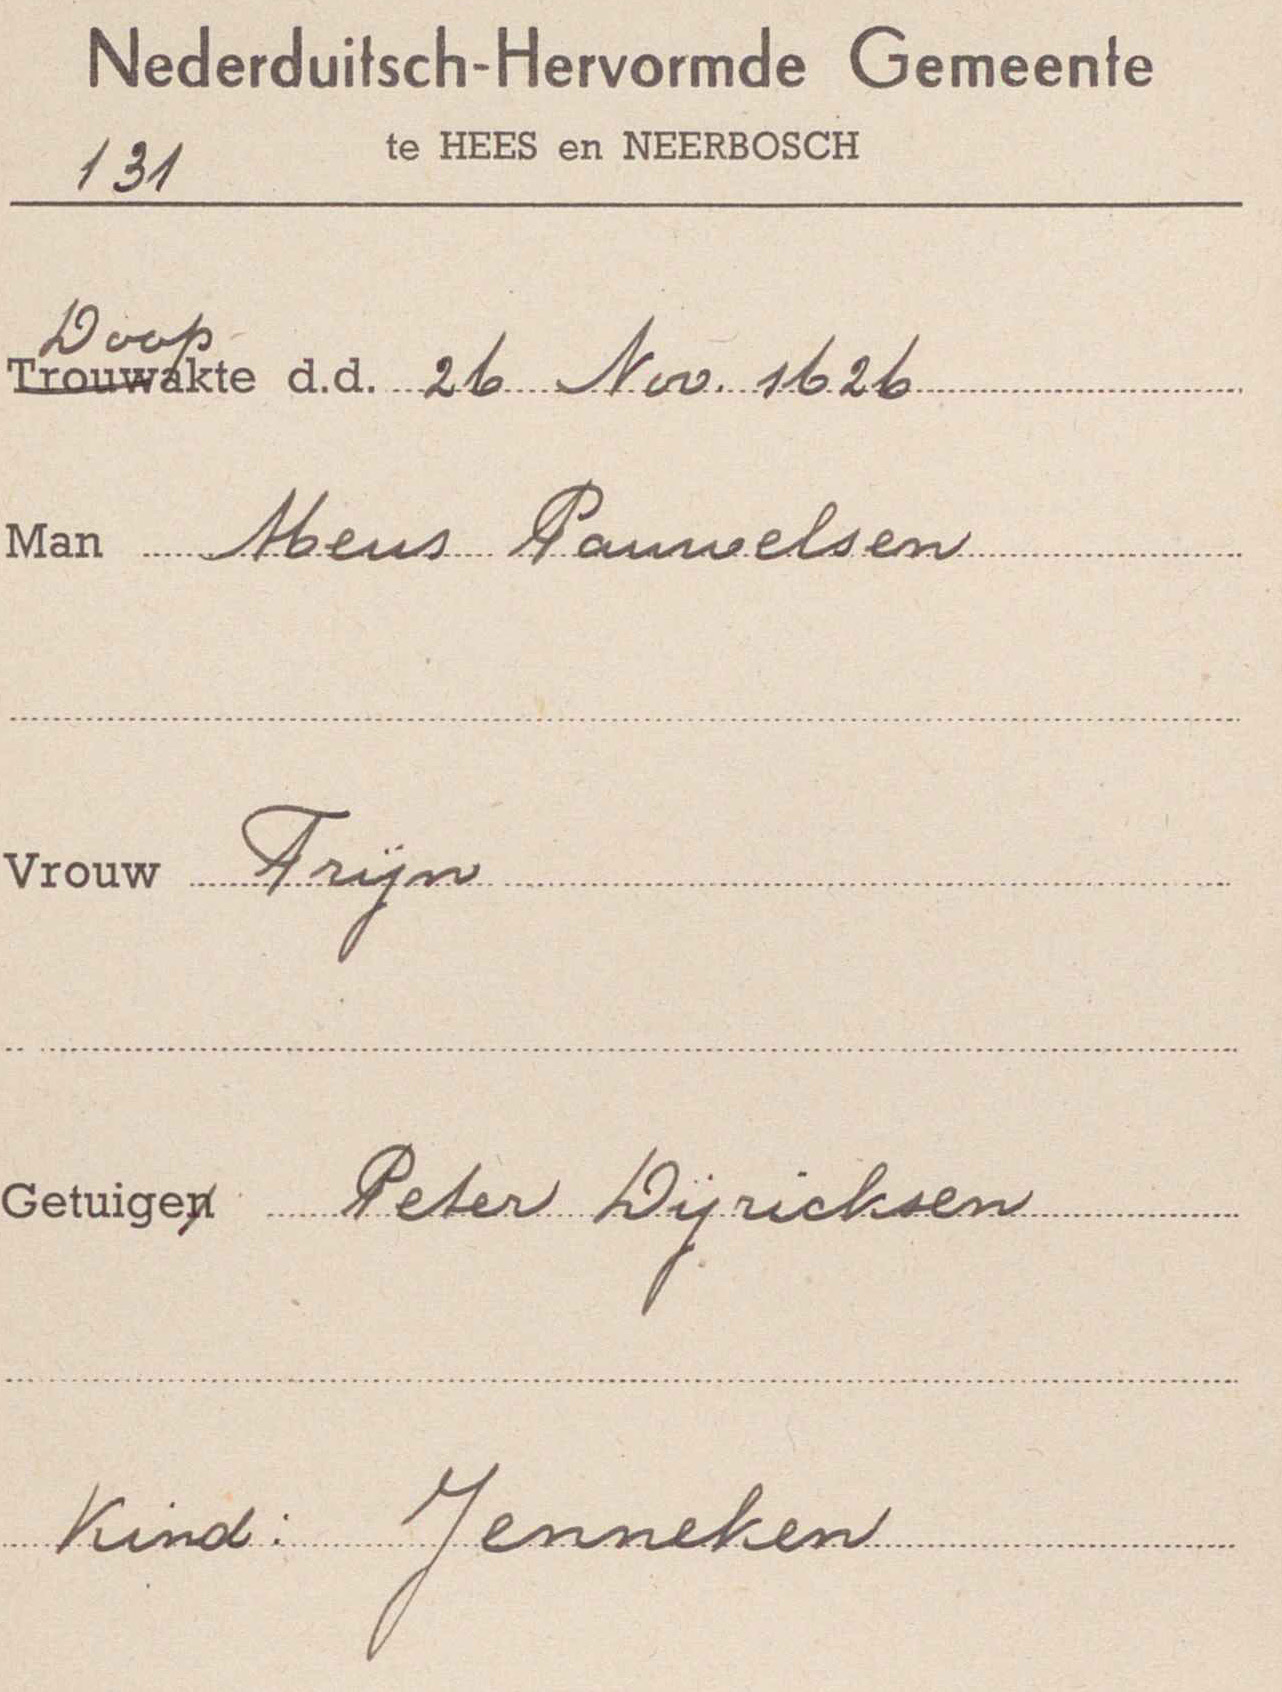 Nederduitsch-Hervormde Gemeente
te HEES en NEERBOSCH
131
Doop
Trouwakte d.d. 26 Nov. 1626
Man Meus Pauwelsen
Vrouw Trijn
Getuigen Peter Dijricksen
Kind: Jenneken